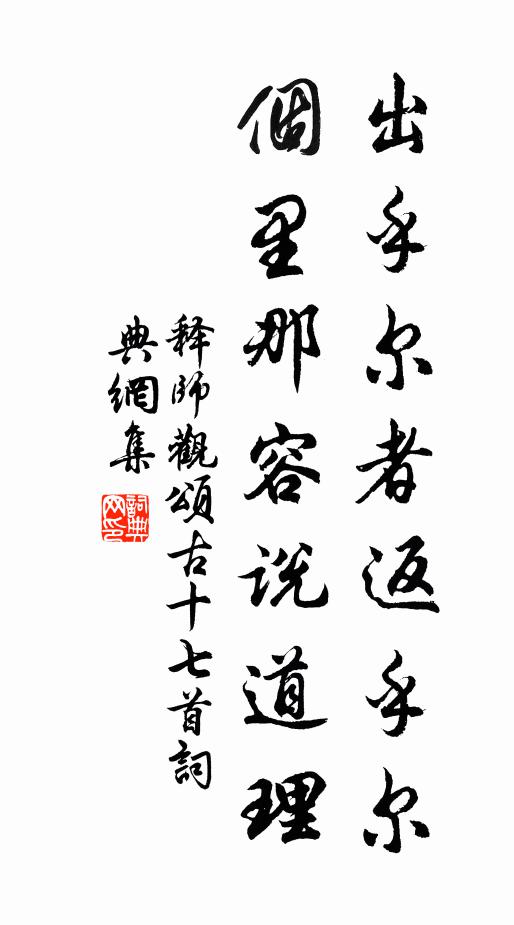 出乎尔者返乎尔
個里那容说道理
释師觀頌古十七首詞
典網集
詞典
网印